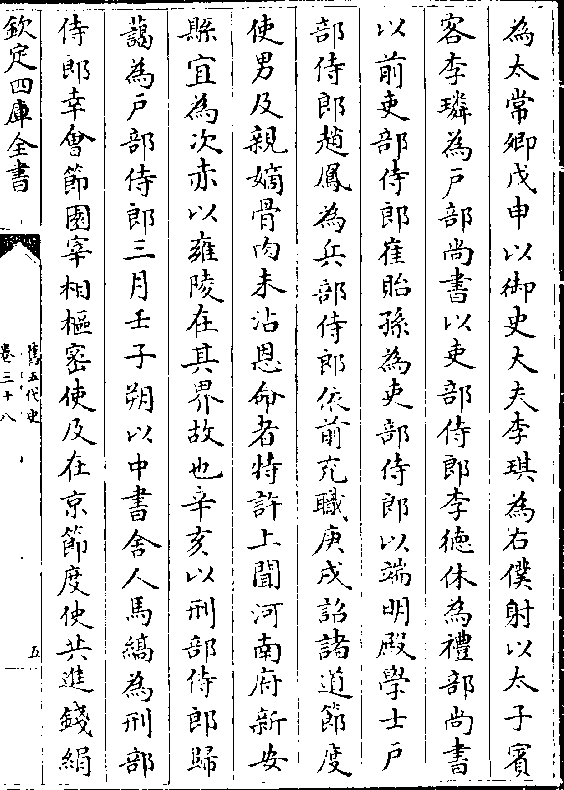 為太常卿戊申以御史大夫李琪為右僕射以太子賓
客李璘為戸部尚書以吏部侍郎李徳休為禮部尚書
以前吏部侍郎崔貽孫為吏部侍郎以端明殿學士戸
部侍郎趙鳳為兵部侍郎依前充職庚戌詔諸道節度
使男及親嫡骨肉未沾恩命者特許上聞河南府新安
縣宜為次赤以雍陵在其界故也辛亥以刑部侍郎歸
藹為戸部侍郎三月壬子朔以中書舍人馬縞為刑部
侍郎幸會節園宰相樞密使及在京節度使共進錢絹
欽定四庫全書
舊五代史
卷三十八
五